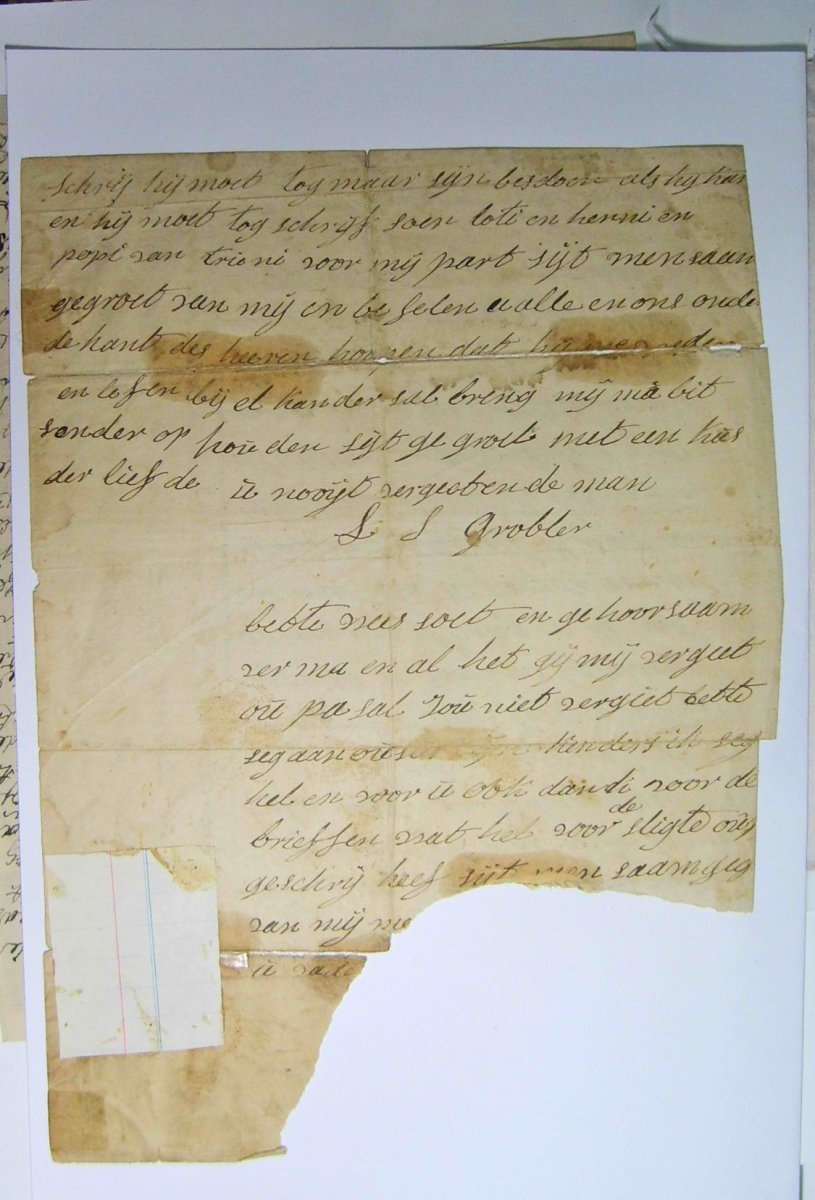 schrij hij moet tog maar sijn besdoen als hy kan
en hij moet tog schrijf soen loti en henni en
popi van trieni voor mij part sijt men saam
gegroet van mij en be felen u alle en ons onde
de hant des heeren hoopen dat hij
en lefen bij el kander sal breng mij ma bit
sonder op houden sijt ge groet met een kus
der liefde ü nooijt vergeetende man
L S Grobler
bebte wees soet en ge hoorsaam
ver ma en al het gij mij vergeet
oü pa sal Joü niet vergiet bebte
seg aan oüs kinders ik seg
hel en voor ü ook danki voor de
brieffen wat hel voor de sligte oüp
geschrij heef sijt men saam geg
van mij me
ü vade